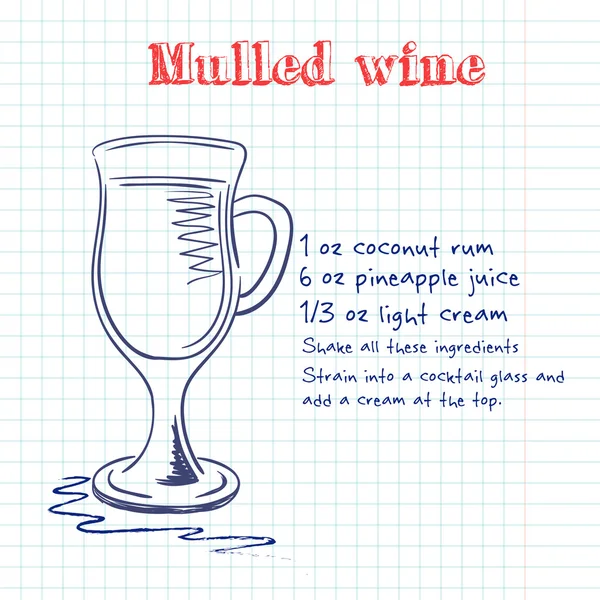 Mulled wine
1 oz coconut rum
6 oz pineapple juice
1/3 oz light cream
Shake all these ingredients
Strain into a cocktail glass and
add a cream at the top.